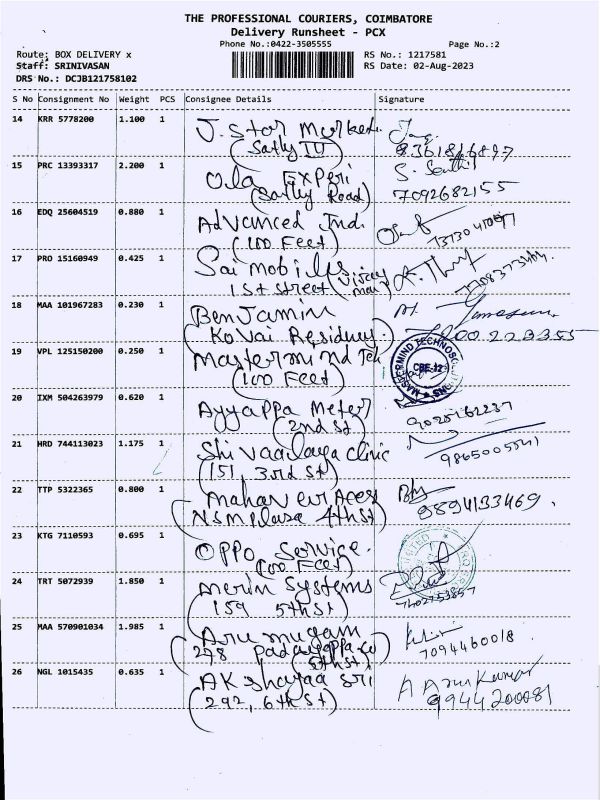 THE PROFESSIONAL COURIERS, COIMBATORE
Delivery Runsheet - PCX
Phone No.:0422-3505555 Page No.:2
Route: BOX DELIVERY x RS No.: 1217581
Staff: SRINIVASAN RS Date: 02-Aug-2023
DRS No.: DCJB121758102
S No Consignment No Weight PCS Consignee Details Signature
14 KRR 5778200 1.100 1 J. Star
(Sathy 
8361816897
15 PRC 13393317 2.200 1 Ola Experi S. Senthil
(Sathy Road) 7092682155
16 EDQ 25604519 0.880 1 Advanced Ind.
(100 Feet)
17 PRO 15160949 0.425 1 Sai mobiles
1st street (Vijay
18 MAA 101967283 0.230 1 Benjamin
(Kovai Residncy)
19 VPL 125150200 0.250 1 Mastermind Teh CBE-12
(100 Feet)
20 IXM 504263979 0.620 1 Ayyappa Meter
(2nd St) 9025162237
21 HRD 744113023 1.175 1 Shivaalaya clinic
(151, 3rd St) 9865005541
22 TTP 5322365 0.800 1 Mahaveer Aces
(NSM Plaza 4th St) 9894133469.
23 KTG 7110593 0.695 1 OPPO Service.
(100 Feet)
24 TRT 5072939 1.850 1 Merin Systems
(159 5th St) 7402753857
25 MAA 570901034 1.985 1 Arumugam
(278 7094460018.
(5th St)
26 NGL 1015435 0.635 1 Akshayaa Sri A Arun Kumar
(292, 6th St) 9944200081